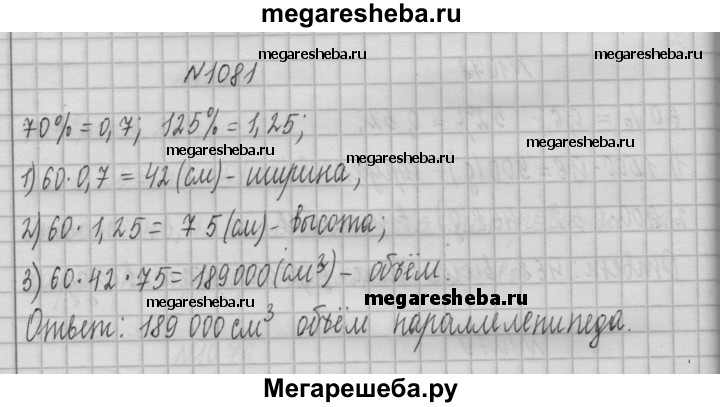 megaresheba.ru
megaresheba.ru
megaresheba.ru
№1081
70% = 0,7; 125% = 1,25;
megaresheba.ru
megaresheba.ru
1) 60·0,7 = 42 (см) - ширина;
2) 60·1,25 = 75 (см) - высота;
3) 60·42·75 = 189000 (см³) - объём.
megaresheba.ru
megaresheba.ru
Ответ: 189 000 см³ объём параллелепипеда.
Мегарешеба.ру